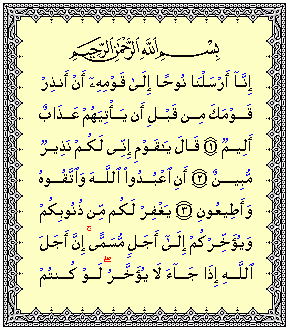 بِسْمِ ٱللَّهِ ٱلرَّحْمَٰنِ ٱلرَّحِيمِ
إِنَّآ أَرْسَلْنَا نُوحًا إِلَىٰ قَوْمِهِۦٓ أَنْ أَنذِرْ
قَوْمَكَ مِن قَبْلِ أَن يَأْتِيَهُمْ عَذَابٌ
أَلِيمٌ ١ قَالَ يَٰقَوْمِ إِنِّى لَكُمْ نَذِيرٌ
مُّبِينٌ ٢ أَنِ ٱعْبُدُوا۟ ٱللَّهَ وَٱتَّقُوهُ
وَأَطِيعُونِ ٣ يَغْفِرْ لَكُم مِّن ذُنُوبِكُمْ
وَيُؤَخِّرْكُمْ إِلَىٰٓ أَجَلٍ مُّسَمًّى ۚ إِنَّ أَجَلَ
ٱللَّهِ إِذَا جَآءَ لَا يُؤَخَّرُ ۖ لَوْ كُنتُمْ